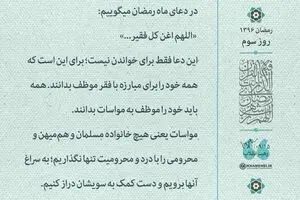 در دعای ماه رمضان میگوییم:
«اللهم اغن کل فقیر...»
این دعا فقط برای خواندن نیست؛ برای این است که
همه خود را برای مبارزه با فقر موظف بدانند. همه
باید خود را موظف به مواسات بدانند.
مواسات یعنی هیچ خانواده مسلمان و هم‌میهن و
محرومی را با درد و محرومیت تنها نگذاریم؛ به سراغ
آنها برویم و دست کمک به سویشان دراز کنیم.
رمضان ۱۳۹۶
روز سوم